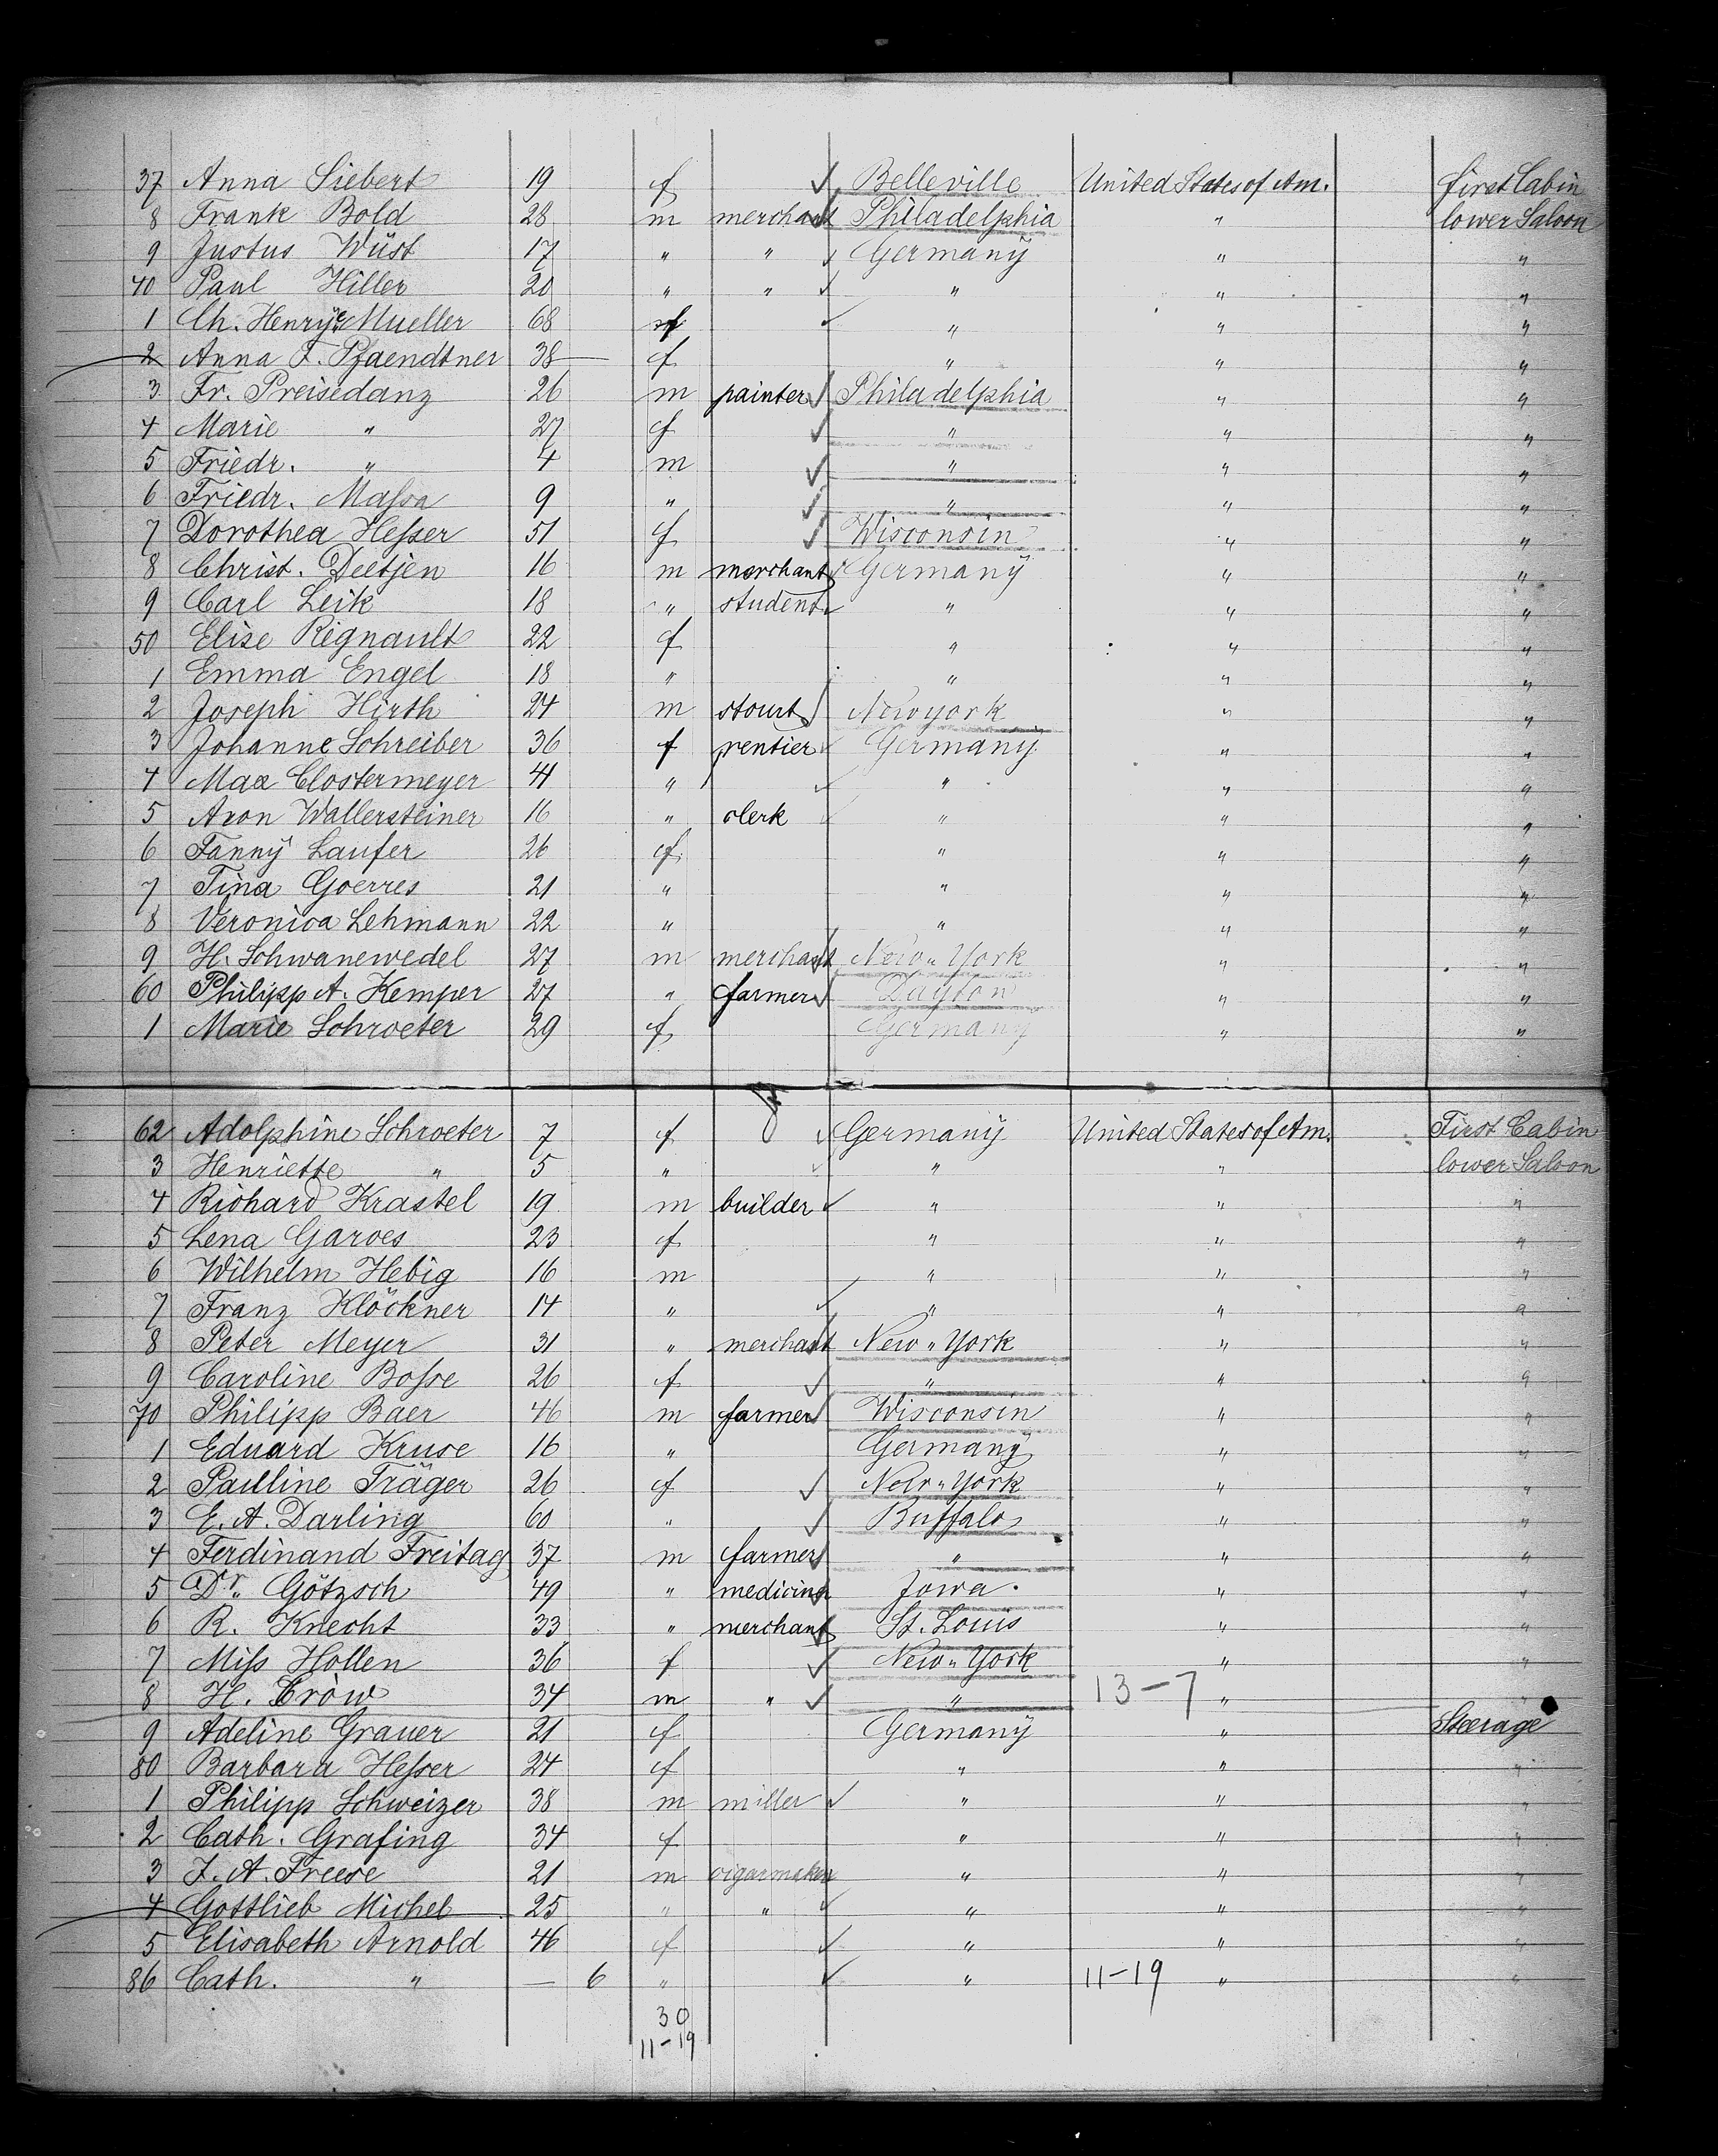 37 Anna Siebert 19 f Belleville United States of Am. first Cabin
8 Frank Bold 28 m merchant Philadelphia " lower Saloon
9 Justus Wüst 17 " " Germany " "
40 Paul Hiller 20 " " " " "
1 Ch. Henrye Mueller 68 f " " "
2 Anna F. Pfaendtner 38 f " " "
3 Fr. Preisedanz 26 m painter Philadelphia " "
4 Marie " 27 f " " "
5 Friedr. " 4 m " " "
6 Friedr. Maſsa 9 " " " "
7 Dorothea Heſser 51 f Wisconsin " "
8 Christ. Deetjen 16 m merchant Germany " "
9 Carl Leik 18 " student " " "
50 Elise Rignault 22 f " " "
1 Emma Engel 18 " " " "
2 Joseph Hirth 24 m Newyork " "
3 Johanne Schreiber 36 f rentier Germany " "
4 Max Clostermeyer 41 " " " "
5 Aron Wallersteiner 16 " clerk " " "
6 Fanny Laufer 26 f " " "
7 Tina Goerres 21 " " " "
8 Veronica Lehmann 22 " " " "
9 H. Schwanewedel 27 m merchant New " York " "
60 Philipp A. Kemper 27 " farmer Dayton " "
1 Marie Schroeter 29 f Germany " "
62 Adolphine Schroeter 7 f Germany United States of Am. First Cabin
3 Henriette " 5 " " " lower Saloon
4 Richard Krastel 19 m builder " " "
5 Lena Garves 23 f " " "
6 Wilhelm Hebig 16 m " " "
7 Franz Klöckner 14 " " " "
8 Peter Meyer 31 " merchant New " York " "
9 Caroline Boſse 26 f " " "
70 Philipp Baer 46 m farmer Wisconsin " "
1 Eduard Kruse 16 " Germany " "
2 Pauline Träger 26 f New " York " "
3 E. A. Darling 60 " Buffalo " "
4 Ferdinand Freitag 37 m farmer " " "
5 Dr. Götzsch 49 " medicine Jowa. " "
6 R. Knecht 33 " merchant St. Louis " "
7 Miſs Hollen 36 f New " York " "
8 H. Cròw 34 m " " 13-7 " "
9 Adeline Grauer 21 f Germany " Steerage
80 Barbara Heſser 24 f " " "
1 Philipp Schweizer 38 m miller " " "
2 Cath. Grafing 34 f " " "
3 J. A. Freese 21 m cigarmaker " " "
4 Gottlieb Michel 25 " " " " "
5 Elisabeth Arnold 46 f " " "
86 Cath. " — 6 " " 11-19 " "
30
11-19